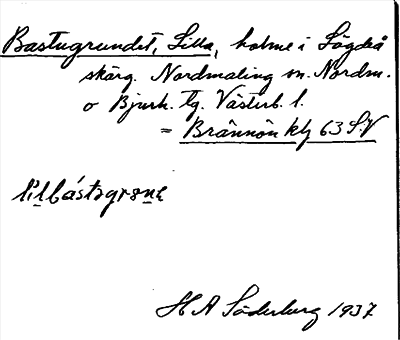 Bastugrundet, Lilla, holme i Lögdeå
skärg. Nordmaling sn. Nordm.
o Bjurh. tg. Västerb. l.
= Brännön kbl 63 S.V
H A Söderberg 1937